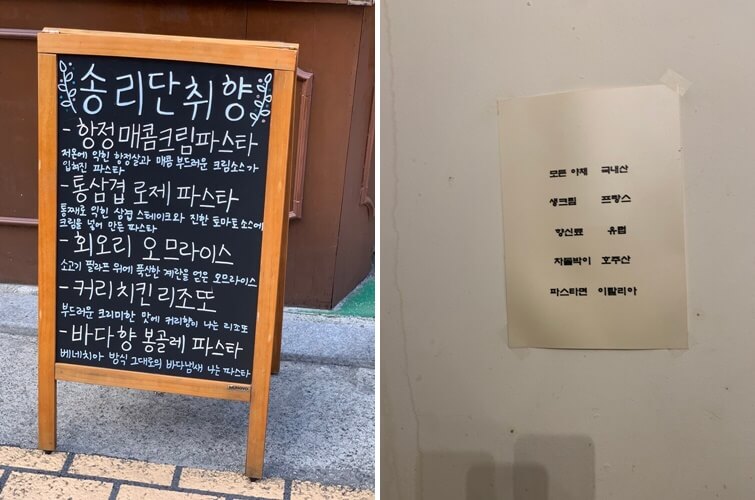 송리단취향
- 항정매콤크림파스타
저온에 익힌 항정살과 매콤 부드러운 크림소스가
입혀진 파스타
- 통삼겹 로제 파스타
통째로 익힌 삼겹 스테이크와 진한 토마토소스에
크림을 넣어 만든 파스타
- 회오리 오므라이스
소고기 필라프 위에 푹신한 계란을 얹은 오므라이스
- 커리치킨리조또
부드러운 크리미한 맛에 커리향이 나는 리조또
- 바다향 봉골레 파스타
베네치아 방식 그대로의 바다냄새 나는 파스타
모든 야채 국내산
생크림 프랑스
향신료 유럽
차돌박이 호주산
파스타면 이탈리아